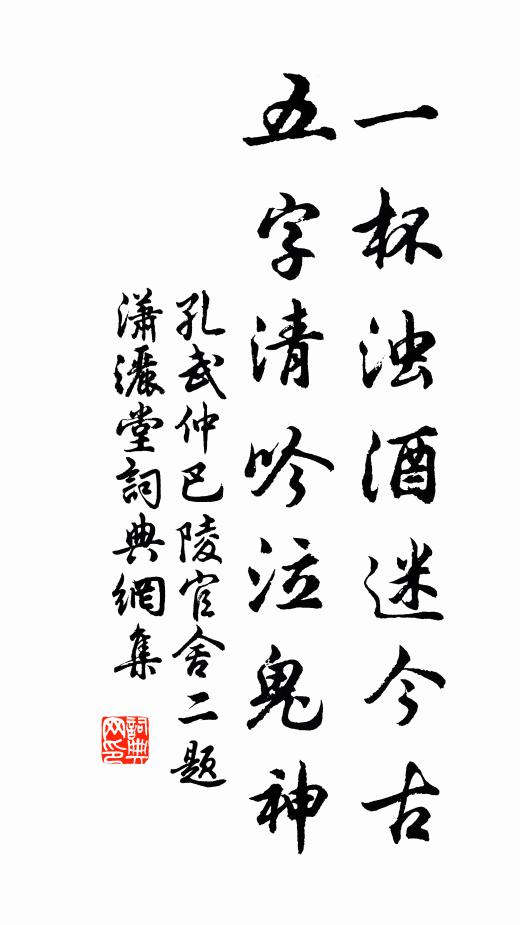 一杯浊酒迷今古
五字清吟泣鬼神
孔武仲巴陵官舍二题
潇灑堂詞典網集
詞典網印